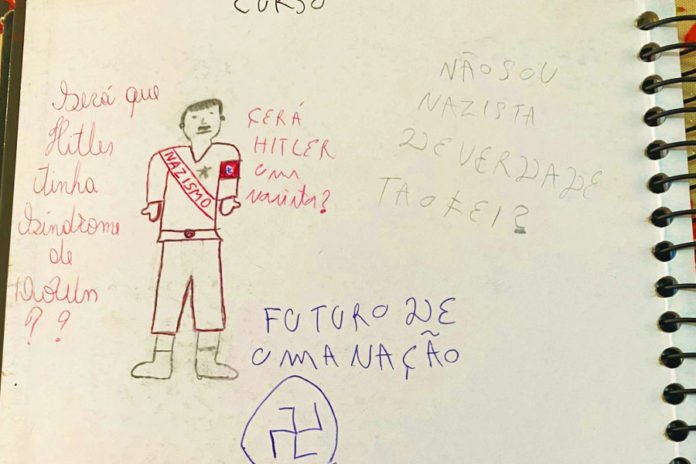 CURSO
Será que
Hitler
tinha
Síndrome
de
DOWN
? ?
NAZISMO
ÇERÁ
HITLER
um
nazista?
NÃO SOU
NAZISTA
DE VERDADE
TAOKEI?
FUTURO DE
UMA NAÇÃO